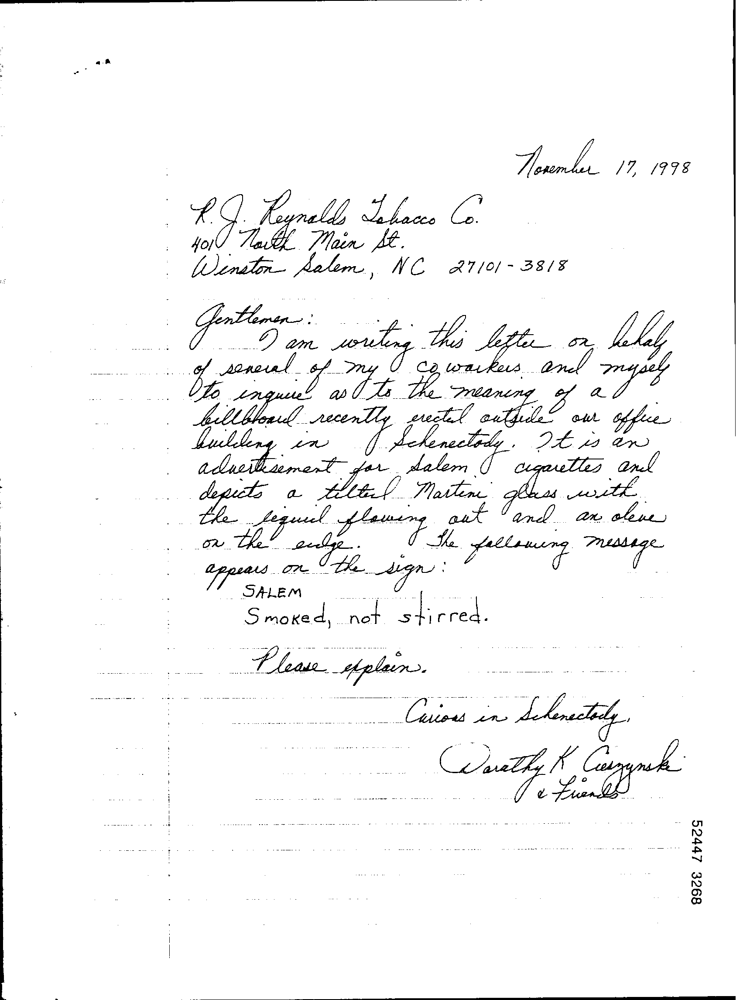 November 17, 1998
R. J. Reynolds Tobacco Co.
401 North Main St.
Winston Salem, NC 27101-3818
Gentlemen:
I am writing this letter on behalf
of several of my coworkers and myself
to inquire as to the meaning of a
billboard recently erected outside our office
building in Schenectady. It is an
advertisement for Salem cigarettes and
depicts a tilted Martini glass with
the liquid flowing out and an olive
on the edge. The following message
appears on the sign:
SALEM
Smoked, not stirred.
Please explain.
Curious in Schenectady,
Dorothy K Cieszynski
& Friends
52447 3268